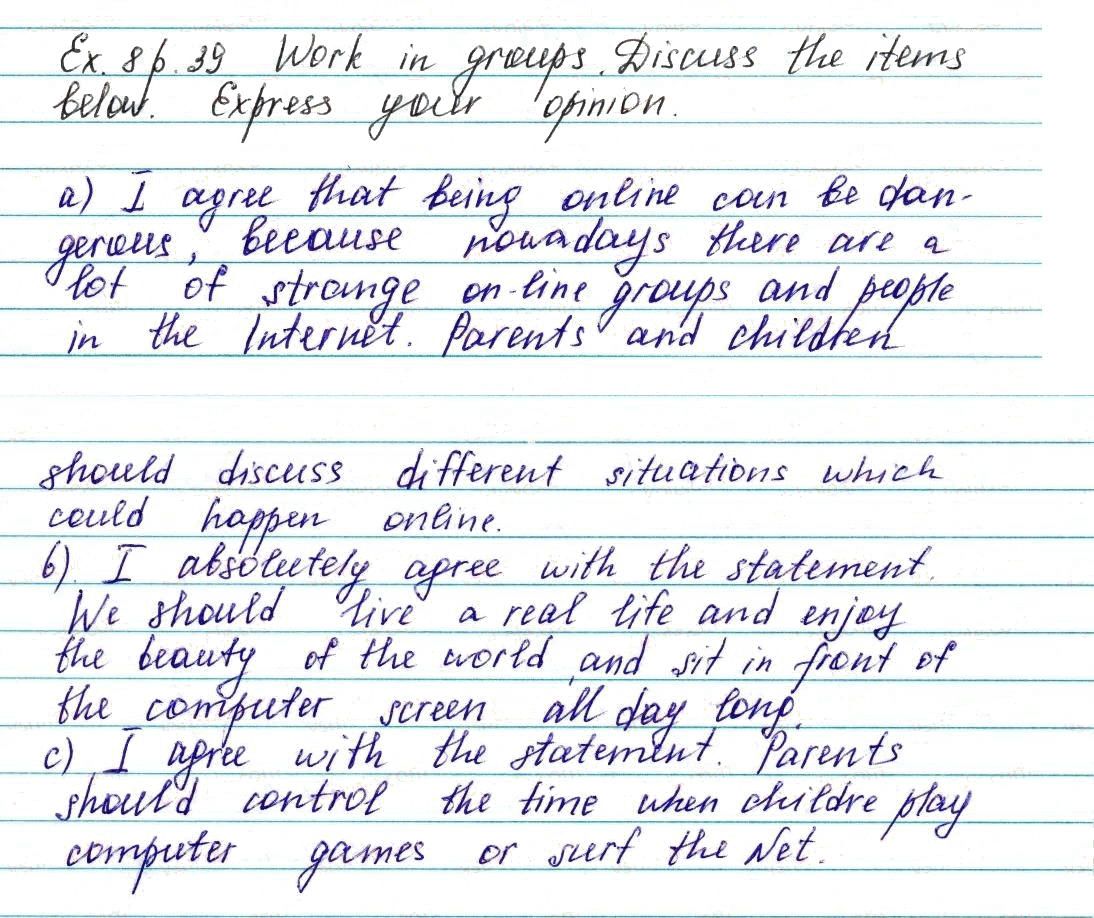 Ex. 8 p. 39 Work in groups. Discuss the items
below. Express your opinion.
a) I agree that being online can be dan-
gerous, because nowadays there are a
lot of strange on-line groups and people
in the Internet. Parents and children
should discuss different situations which
could happen online.
b). I absolutely agree with the statement.
We should live a real life and enjoy
the beauty of the world and sit in front of
the computer screen all day long.
c) I agree with the statement. Parents
should control the time when childre play
computer games or surf the Net.